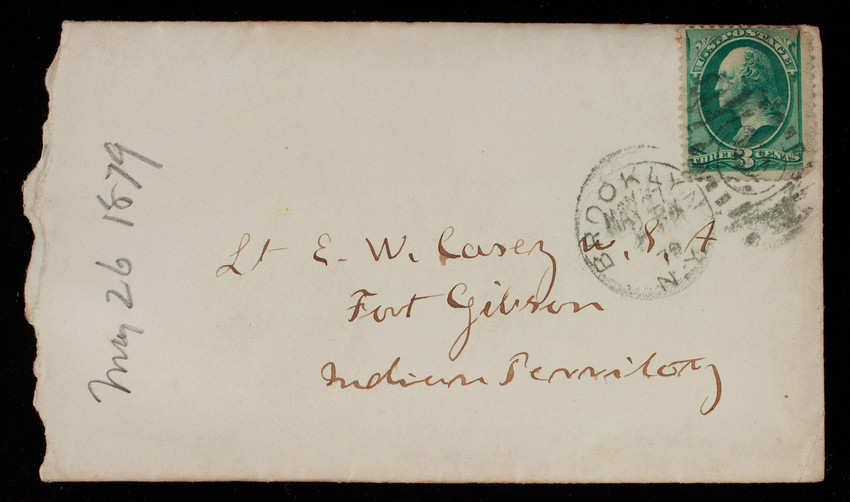 U.S. POSTAGE
THREE 3 CENTS
BROOKLYN N.Y.
MAY 27
79
Lt E. W. Casey U.S.A
Fort Gibson
Indian Territoty
May 26 1879